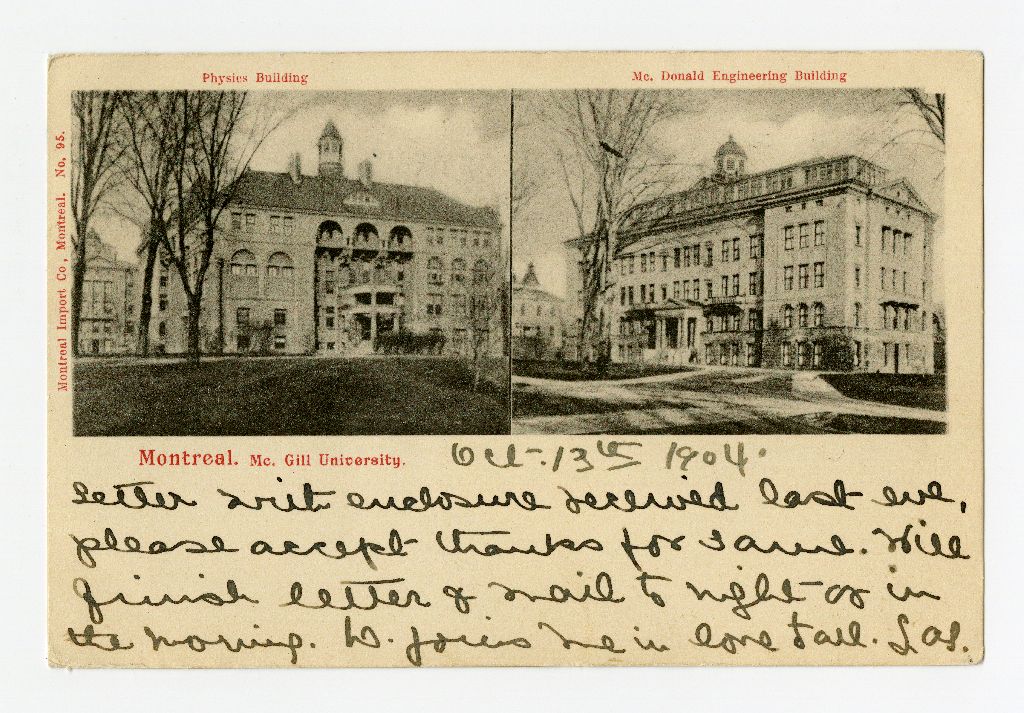 Physics Building
Mc. Donald Engineering Building
Montreal Import Co, Montreal. No, 95.
Montreal. Mc. Gill University.
Oct. 13th 1904.
letter with enclosure received last eve,
please accept thanks for same. Will
finish letter & mail to night or in
the morning. W. joins me in love to all.